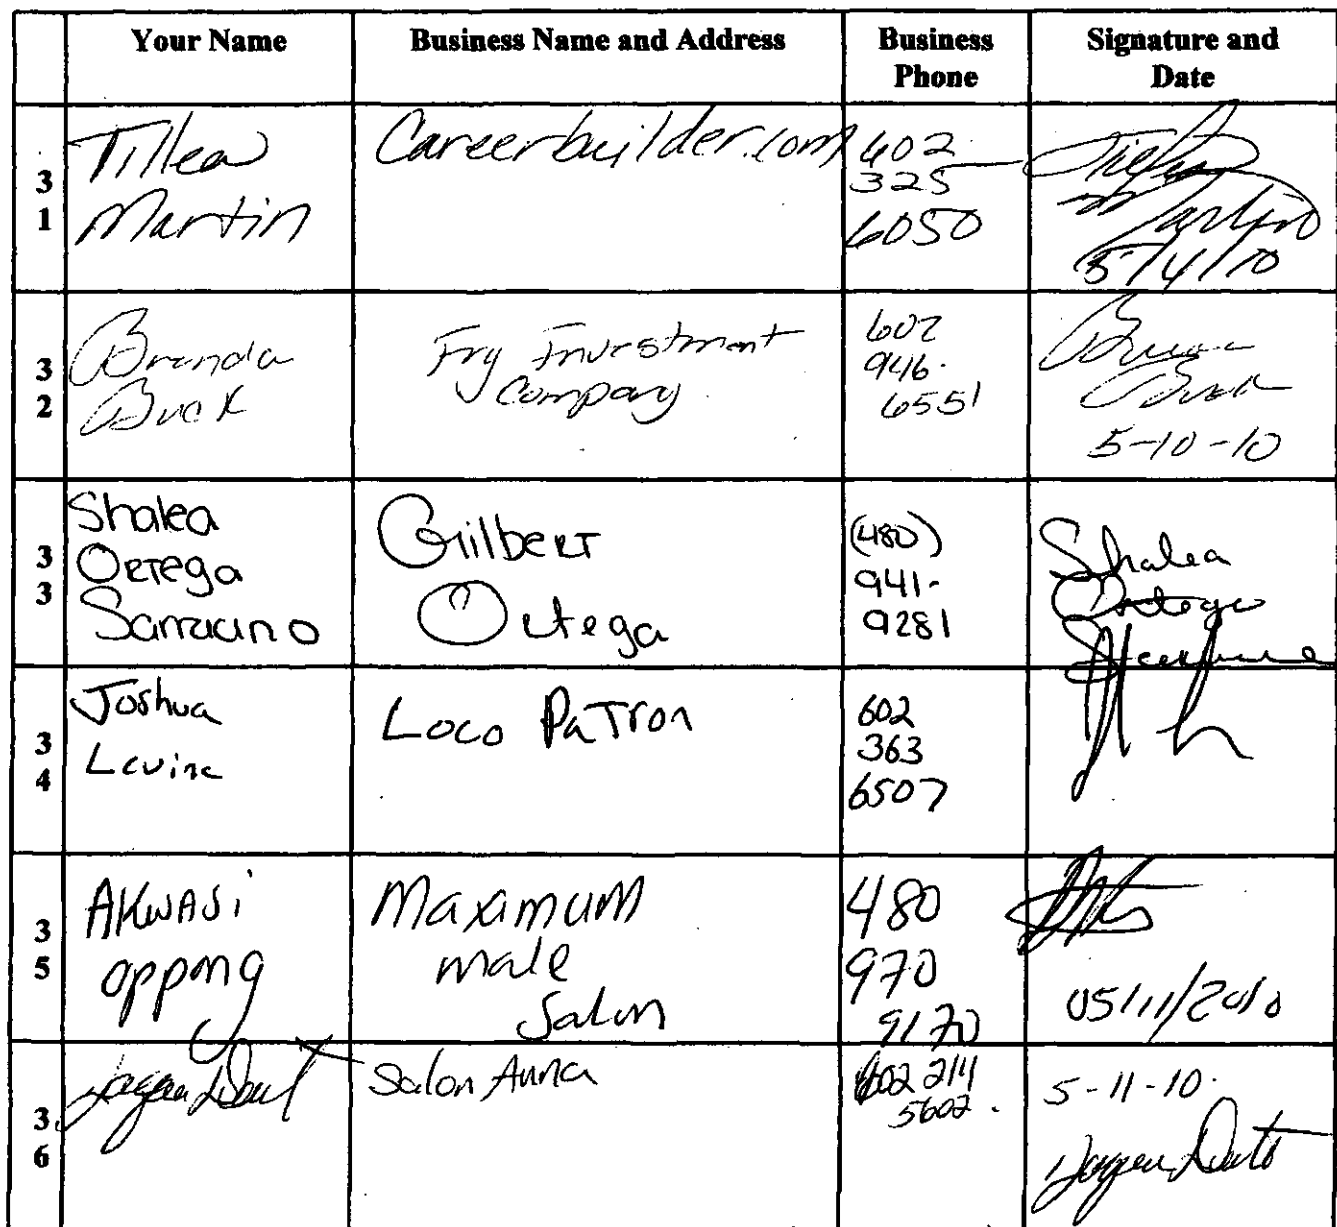 Your Name
Business Name and Address
Business
Phone
Signature and
Date
3
1
Tillea
Martin
Careerbuilder.com
602
325
6050
Martin
5/4/10
3
2
Brenda
Buck
Fry Investment
Company
602
946.
6551
Buck
5-10-10
3
3
Shalea
Ortega
Sarracino
Gilbert
Ortega
(480)
941-
9281
Shalea
Ortega
3
4
Joshua
Levine
Loco Patron
602
363
6507
3
5
AKWASi
oppong
Maximum
male
Salon
480
970
9170
05/11/2010
3
6
Salon Anna
602
5602
5-11-10